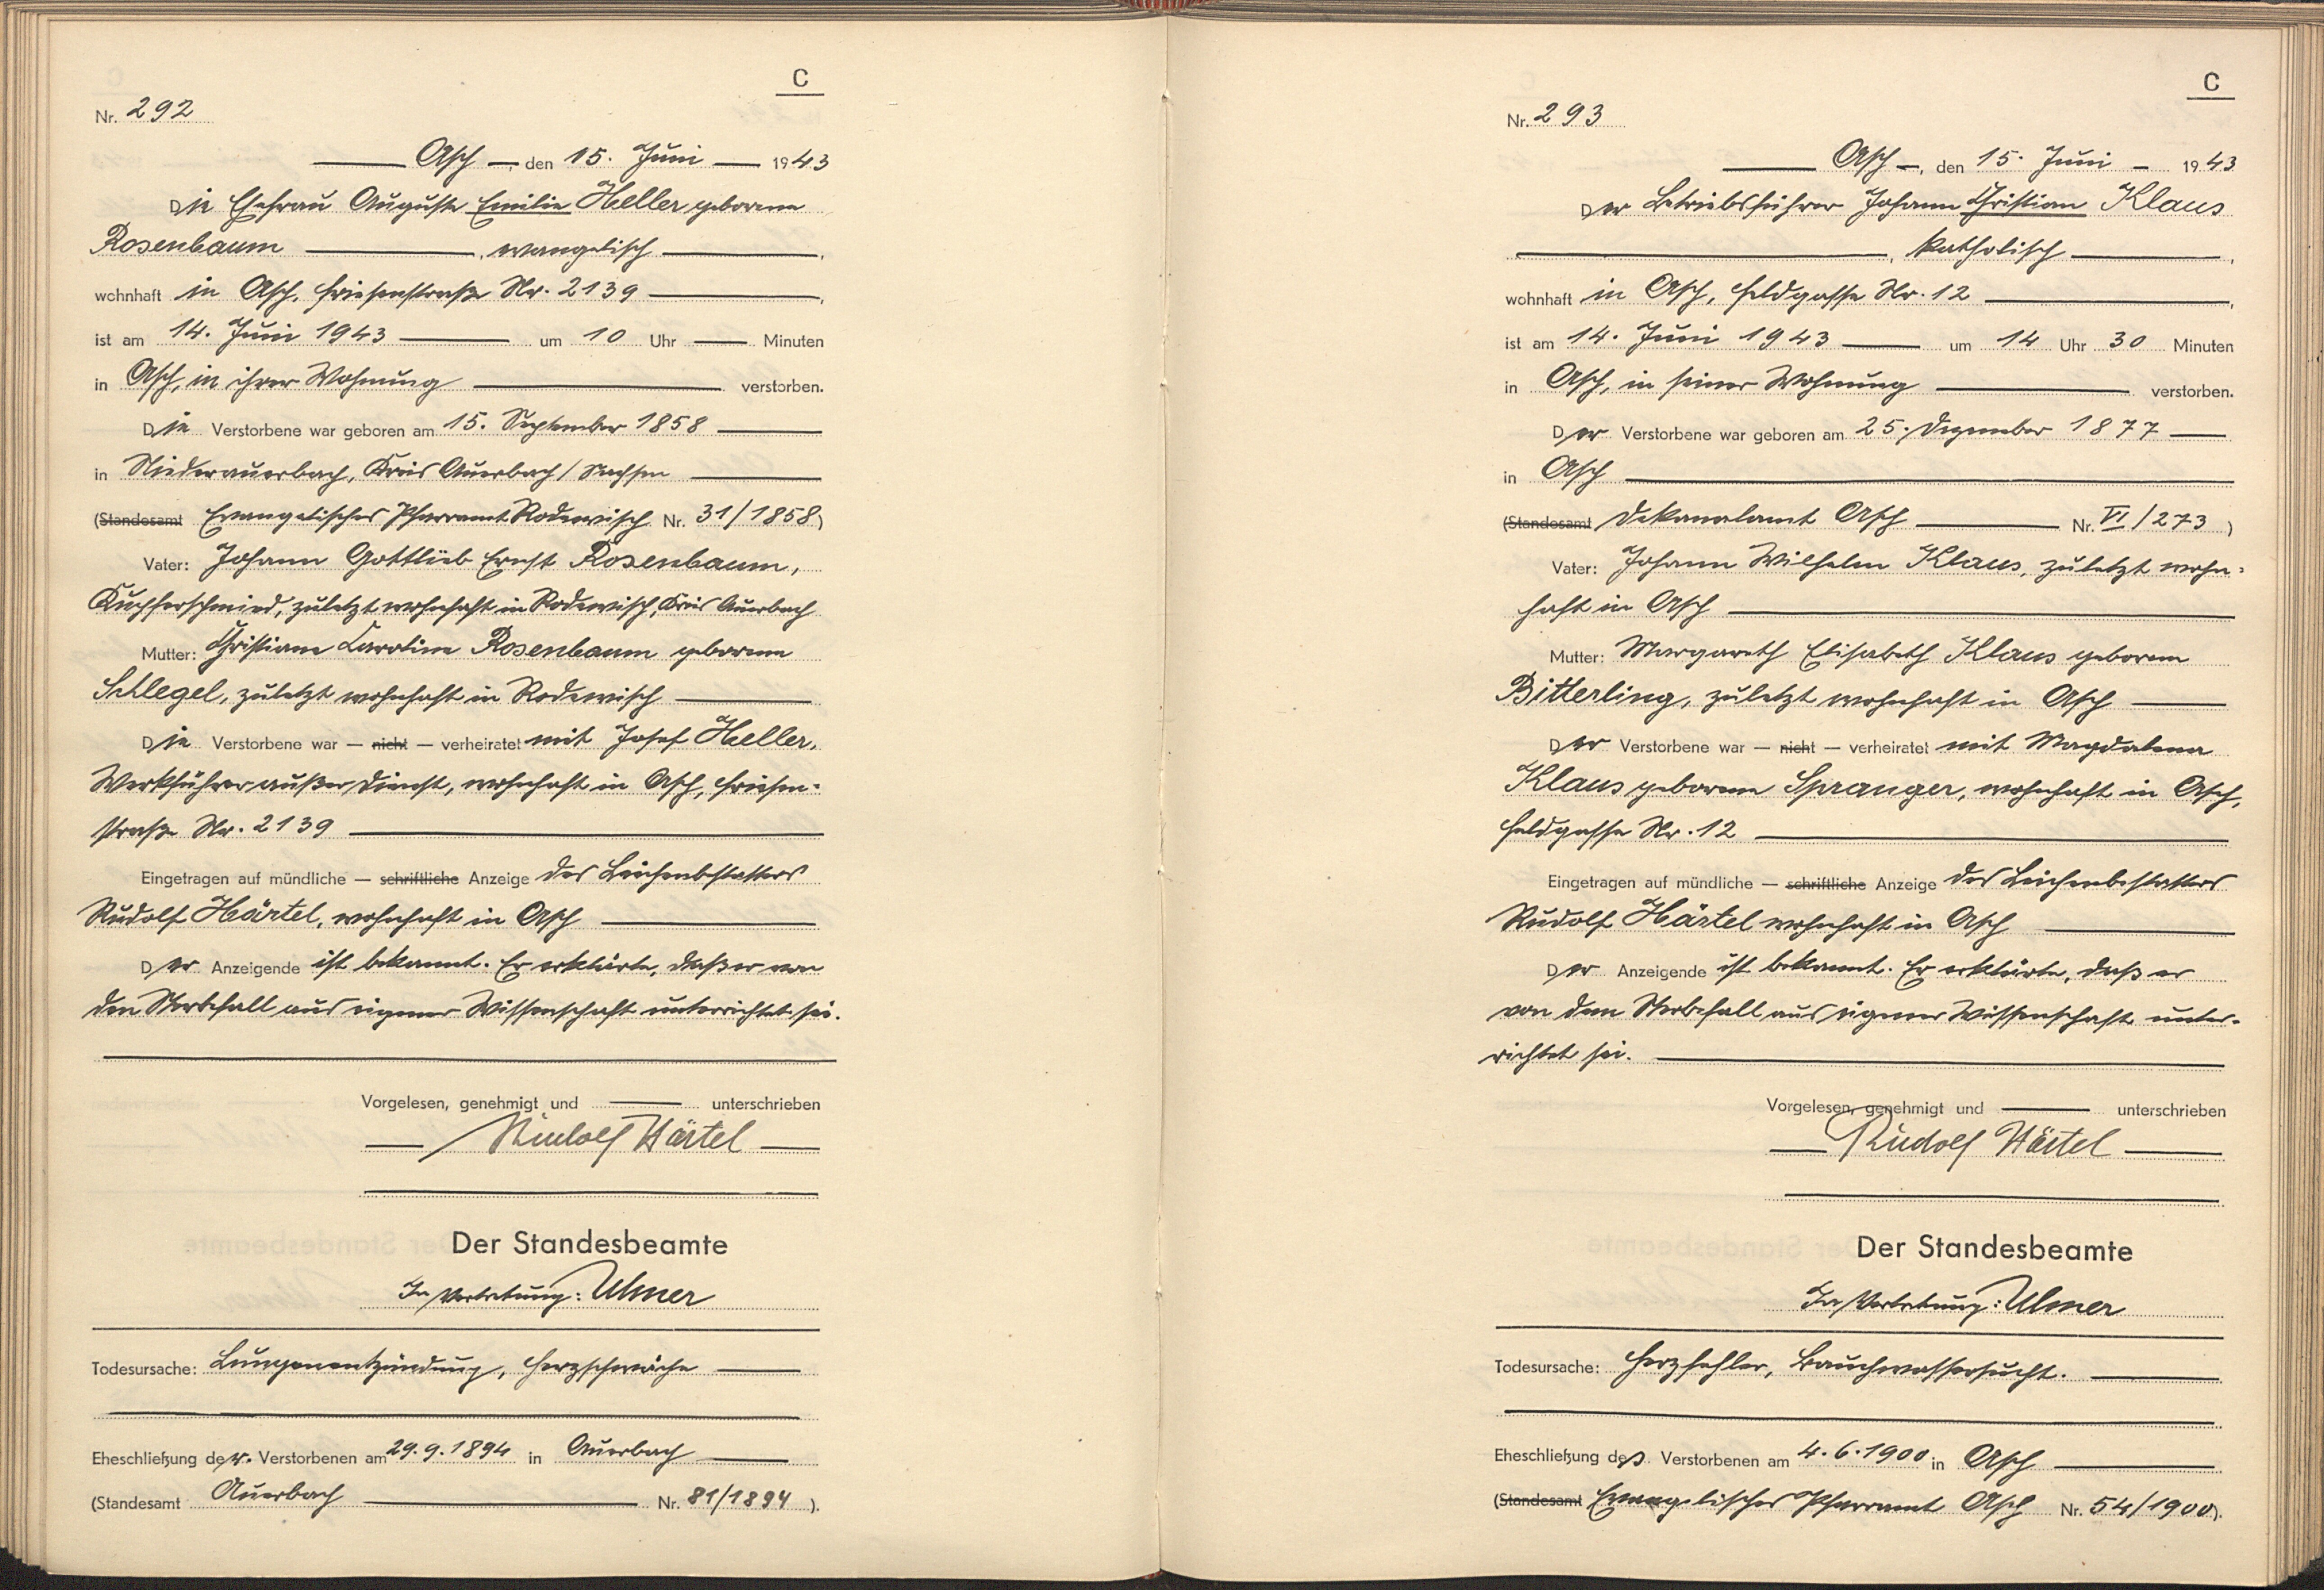 C
Nr. 292
Asch, den 15. Juni 1943
Die Ehefrau Auguste Emilie Heller geborene
Rosenbaum, evangelisch,
wohnhaft in Asch, Friesenstraße Nr. 2139,
ist am 14. Juni 1943 um 10 Uhr Minuten
in Asch, in ihrer Wohnung verstorben.
Die Verstorbene war geboren am 15. September 1858
in Niederauerbach, Kreis Auerbach / Sachsen
(Standesamt Evangelisches Pfarramt Rodewisch Nr. 31/1858)
Vater: Johann Gottlieb Ernst Rosenbaum,
Kupferschmied, zuletzt wohnhaft in Rodewisch, Kreis Auerbach
Mutter: Christiane Karoline Rosenbaum geborene
Schlegel, zuletzt wohnhaft in Rodewisch
Die Verstorbene war — nicht — verheiratet mit Josef Heller,
Werkführer außer Dienst, wohnhaft in Asch, Friesen-
straße Nr. 2139
Eingetragen auf mündliche — schriftliche Anzeige des Leichenbestatters
Rudolf Härtel, wohnhaft in Asch
Der Anzeigende ist bekannt. Er erklärte, daß er von
den Sterbefall aus eigener Wissenschaft unterrichtet sei.
Vorgelesen, genehmigt und unterschrieben
Rudolf Härtel
Der Standesbeamte
In Vertretung: Ulmer
Todesursache: Lungenentzündung, Herzschwäche
Eheschließung der Verstorbenen am 29.9.1894 in Auerbach
(Standesamt Auerbach Nr. 81/1894).
C
Nr. 293
Asch, den 15. Juni 1943
Der Betriebsführer Johann Christian Klaus
, katholisch,
wohnhaft in Asch, Feldgasse Nr. 12,
ist am 14. Juni 1943 um 14 Uhr 30 Minuten
in Asch, in seiner Wohnung verstorben.
Der Verstorbene war geboren am 25. Dezember 1877
in Asch
(Standesamt Dekanalamt Asch Nr. VI/273)
Vater: Johann Wilhelm Klaus, zuletzt wohn-
haft in Asch
Mutter: Margareth Elisabeth Klaus geborene
Bitterling, zuletzt wohnhaft in Asch
Der Verstorbene war — nicht — verheiratet mit Magdalena
Klaus geborene Spranger, wohnhaft in Asch,
Feldgasse Nr. 12
Eingetragen auf mündliche — schriftliche Anzeige des Leichenbestatters
Rudolf Härtel wohnhaft in Asch
Der Anzeigende ist bekannt. Er erklärte, daß er
von dem Sterbefall aus eigener Wissenschaft unter-
richtet sei.
Vorgelesen, genehmigt und unterschrieben
Rudolf Härtel
Der Standesbeamte
In Vertretung: Ulmer
Todesursache: Herzfehler, Bauchwassersucht.
Eheschließung des Verstorbenen am 4.6.1900 in Asch
(Standesamt Evangelisches Pfarramt Asch Nr. 54/1900).